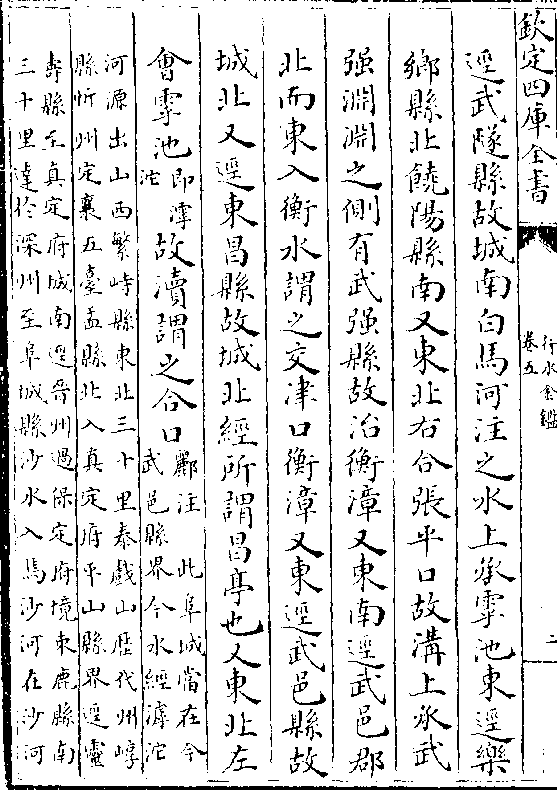 欽定四庫全書
行水金鑑
卷五
二
逕武隧縣故城南白馬河注之水上承雩池東逕樂
鄉縣北饒陽縣南又東北右合張平口故溝上承武
强淵淵之側有武强縣故治衡漳又東南逕武邑郡
北而東入衡水謂之交津口衡漳又東逕武邑縣故
城北又逕東昌縣故城北經所謂昌亭也又東北左
會雩池即滹沱故瀆謂之合口酈注 此阜城當在今武邑縣界今水經滹沱
河源出山西繁峙縣東北三十里泰戲山歷代州崞
縣忻州定襄五臺盂縣北入真定府平山縣界逕靈
壽縣至真定府城南逕晋州過保定府境束鹿縣南
三十里達於深州至阜城縣沙水入焉沙河在沙河